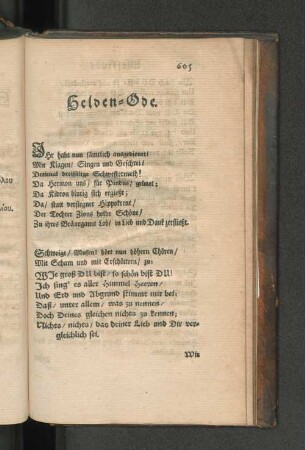 605
Helden-Ode.
IHr habt nun sämtlich ausgedienet/
Mit Klagen/ Singen und Geschrei/
Dreimal dreizählige Schwesterreih!
Da Hermon uns/ für Pindus/ grünet;
Da Kidron blutig sich ergießt;
Da/ statt versiegner Hippokrene/
Der Tochter Zions hohe Schöne/
Zu ihres Bräutgams Lob/ in Lieb und Dank zerfließt.
Schweigt/ Musen! hört nun höhern Chören/
Mit Scham und mit Erschüttern/ zu:
WIe groß DU bist/ so schön bist DU!
Ich sing' es aller Himmel Heeren/
Und Erd und Abgrund stimmt mir bei:
Daß/ unter allem/ was zu nennen/
Doch Deines gleichen nichts zu kennen;
Nichts/ nichts/ das deiner Lieb und Dir ver-
gleichlich sei.
Wie